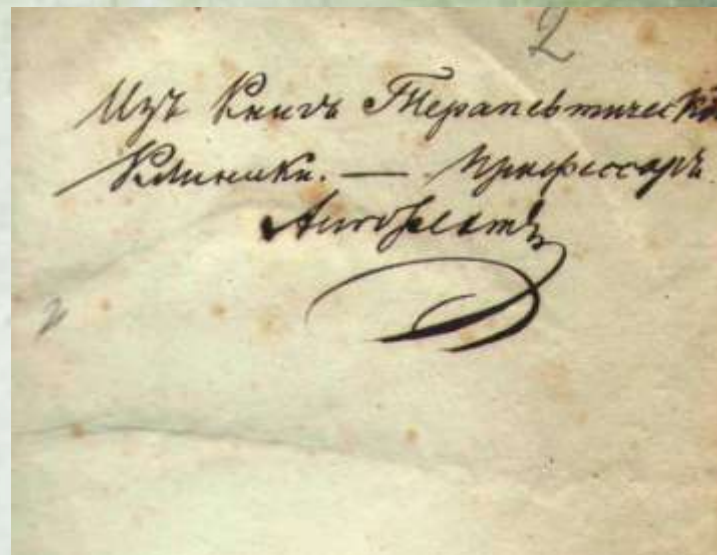 2
Изъ Книгъ Терапевтическо
Клиники. — Профессоръ